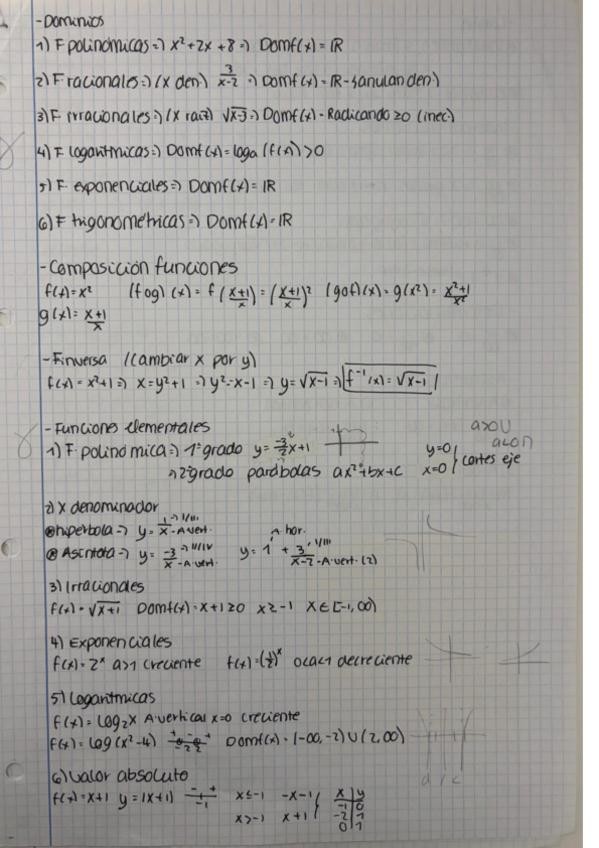 -Dominios
1) F polinómicas => x²+2x+8 => Domf(x)=ℝ
2) F racionales => (x den) 3/(x-2) => Domf(x)=ℝ-{anulan den}
3) F irracionales => (x raíz) √x-3 => Domf(x)=Radicando ≥0 (inec)
4) F logarítmicas => Domf(x)=loga (f(x))>0
5) F. exponenciales => Domf(x)=ℝ
6) F trigonométricas => Domf(x)=ℝ
-Composición funciones
f(x)=x² (fog)(x)=f((x+1)/x)=((x+1)/x)² (gof)(x)=g(x²)=(x²+1)/x²
g(x)=(x+1)/x
-F.inversa (Cambiar x por y)
f(x)=x²+1 => x=y²+1 => y²=x-1 => y=√x-1 => f⁻¹(x)=√x-1
-Funciones elementales
a>0 U
a<0 ∩
1) F. polinómica => 1ºgrado y=-3/2x+1 y=0
=> 2ºgrado parábolas ax²+bx+c x=0 } cortes eje
2) X denominador
Hipérbola => y=1/x → I/III - A.vert. hor.
Asíntota => y=-3/x → II/IV - A.vert. y=1+3/(x-2) I/III - A.vert. (2)
3) Irracionales
f(x)=√x+1 Domf(x)=x+1≥0 x≥-1 x∈[-1,∞)
4) Exponenciales
f(x)=2ˣ a>1 creciente f(x)=(1/2)ˣ 0<a<1 decreciente
5) Logarítmicas
f(x)=log₂x A.vertical x=0 creciente
f(x)=log(x²-4) + - + -2 2 Domf(x)=(-∞,-2)∪(2,∞)
6) Valor absoluto
f(x)=x+1 y=|x+1| - + -1 x≤-1 -x-1 x y
x>-1 x+1 -1 0
-2 1
0 1